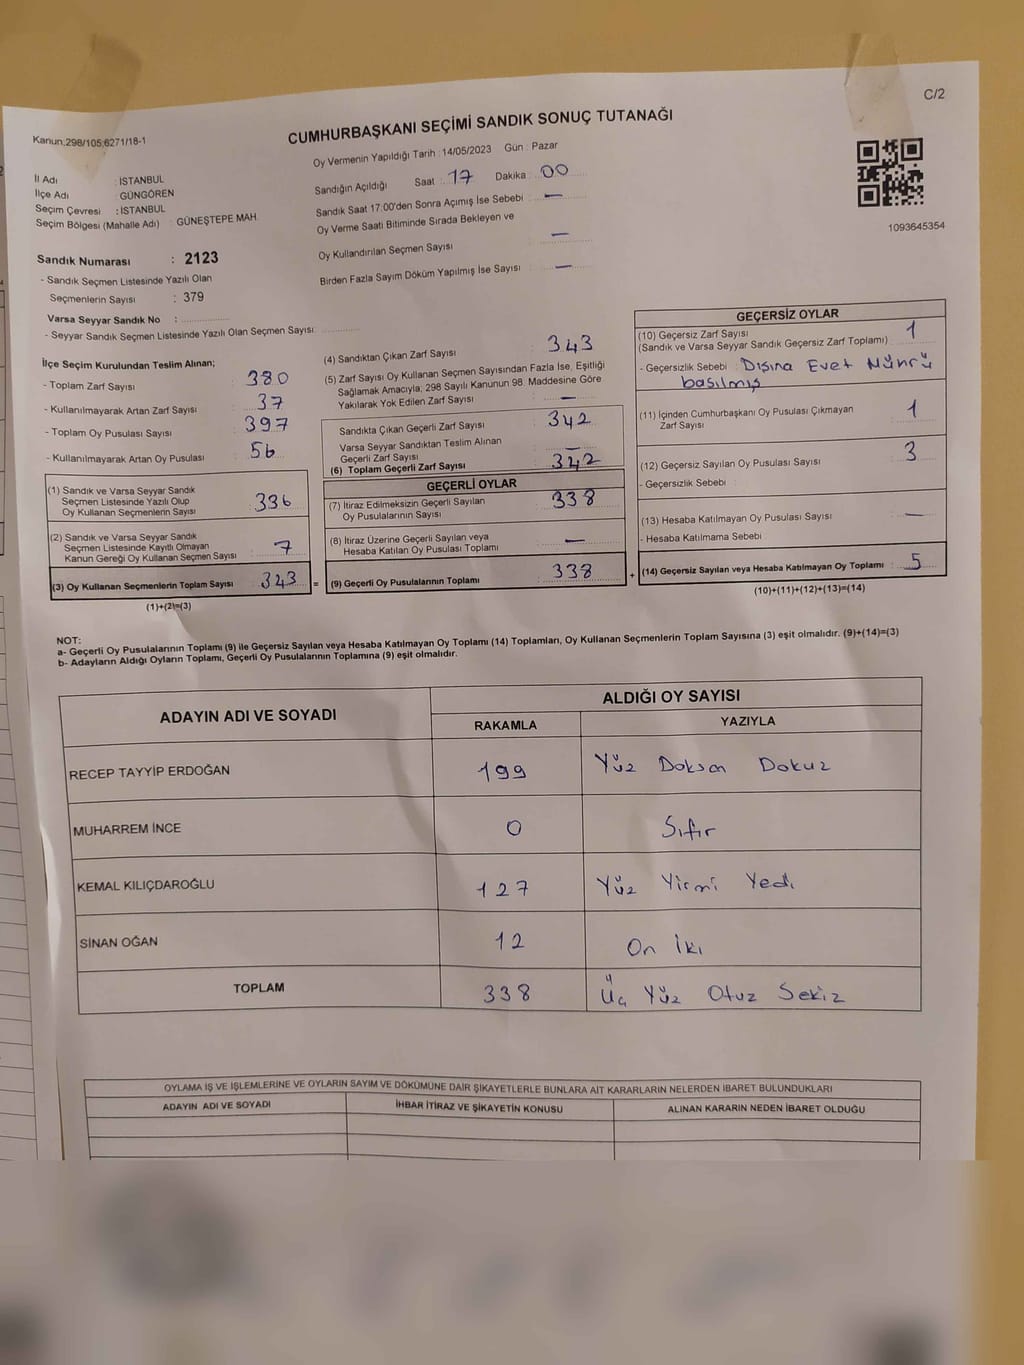 C/2
Kanun:298/105;6271/18-1
CUMHURBAŞKANI SEÇİMİ SANDIK SONUÇ TUTANAĞI
Oy Vermenin Yapıldığı Tarih : 14/05/2023 Gün : Pazar
İl Adı : İSTANBUL
İlçe Adı : GÜNGÖREN
Seçim Çevresi : İSTANBUL
Seçim Bölgesi (Mahalle Adı) : GÜNEŞTEPE MAH.
Sandığın Açıldığı Saat : 17 Dakika : 00
Sandık Saat 17.00'den Sonra Açımış İse Sebebi : —
Oy Verme Saati Bitiminde Sırada Bekleyen ve
Oy Kullandırılan Seçmen Sayısı : —
Birden Fazla Sayım Döküm Yapılmış İse Sayısı : —
1093645354
Sandık Numarası : 2123
- Sandık Seçmen Listesinde Yazılı Olan
Seçmenlerin Sayısı : 379
Varsa Seyyar Sandık No :
- Seyyar Sandık Seçmen Listesinde Yazılı Olan Seçmen Sayısı:
İlçe Seçim Kurulundan Teslim Alınan;
- Toplam Zarf Sayısı : 380
- Kullanılmayarak Artan Zarf Sayısı : 37
- Toplam Oy Pusulası Sayısı : 397
- Kullanılmayarak Artan Oy Pusulası : 56
(1) Sandık ve Varsa Seyyar Sandık
Seçmen Listesinde Yazılı Olup
Oy Kullanan Seçmenlerin Sayısı : 336
(2) Sandık ve Varsa Seyyar Sandık
Seçmen Listesinde Kayıtlı Olmayan
Kanun Gereği Oy Kullanan Seçmen Sayısı : 7
(3) Oy Kullanan Seçmenlerin Toplam Sayısı : 343
(1)+(2)=(3)
=
(4) Sandıktan Çıkan Zarf Sayısı : 343
(5) Zarf Sayısı Oy Kullanan Seçmen Sayısından Fazla İse, Eşitliği
Sağlamak Amacıyla; 298 Sayılı Kanunun 98. Maddesine Göre
Yakılarak Yok Edilen Zarf Sayısı : —
Sandıkta Çıkan Geçerli Zarf Sayısı : 342
Varsa Seyyar Sandıktan Teslim Alınan
Geçerli Zarf Sayısı : —
(6) Toplam Geçerli Zarf Sayısı : 342
GEÇERLİ OYLAR
(7) İtiraz Edilmeksizin Geçerli Sayılan
Oy Pusulalarının Sayısı : 338
(8) İtiraz Üzerine Geçerli Sayılan veya
Hesaba Katılan Oy Pusulası Toplamı : —
(9) Geçerli Oy Pusulalarının Toplamı : 338
+
GEÇERSİZ OYLAR
(10) Geçersiz Zarf Sayısı
(Sandık ve Varsa Seyyar Sandık Geçersiz Zarf Toplamı) : 1
- Geçersizlik Sebebi : Dışına Evet Mührü
basılmış
(11) İçinden Cumhurbaşkanı Oy Pusulası Çıkmayan
Zarf Sayısı : 1
(12) Geçersiz Sayılan Oy Pusulası Sayısı : 3
- Geçersizlik Sebebi :
(13) Hesaba Katılmayan Oy Pusulası Sayısı : —
- Hesaba Katılmama Sebebi
(14) Geçersiz Sayılan veya Hesaba Katılmayan Oy Toplamı : 5
(10)+(11)+(12)+(13)=(14)
NOT:
a- Geçerli Oy Pusulalarının Toplamı (9) ile Geçersiz Sayılan veya Hesaba Katılmayan Oy Toplamı (14) Toplamları, Oy Kullanan Seçmenlerin Toplam Sayısına (3) eşit olmalıdır. (9)+(14)=(3)
b- Adayların Aldığı Oyların Toplamı, Geçerli Oy Pusulalarının Toplamına (9) eşit olmalıdır.
ADAYIN ADI VE SOYADI ALDIĞI OY SAYISI
RAKAMLA YAZIYLA
RECEP TAYYİP ERDOĞAN 199 Yüz Doksan Dokuz
MUHARREM İNCE 0 Sıfır
KEMAL KILIÇDAROĞLU 127 Yüz Yirmi Yedi
SİNAN OĞAN 12 On İki
TOPLAM 338 Üç Yüz Otuz Sekiz
OYLAMA İŞ VE İŞLEMLERİNE VE OYLARIN SAYIM VE DÖKÜMÜNE DAİR ŞİKAYETLERLE BUNLARA AİT KARARLARIN NELERDEN İBARET BULUNDUKLARI
ADAYIN ADI VE SOYADI İHBAR İTİRAZ VE ŞİKAYETİN KONUSU ALINAN KARARIN NEDEN İBARET OLDUĞU